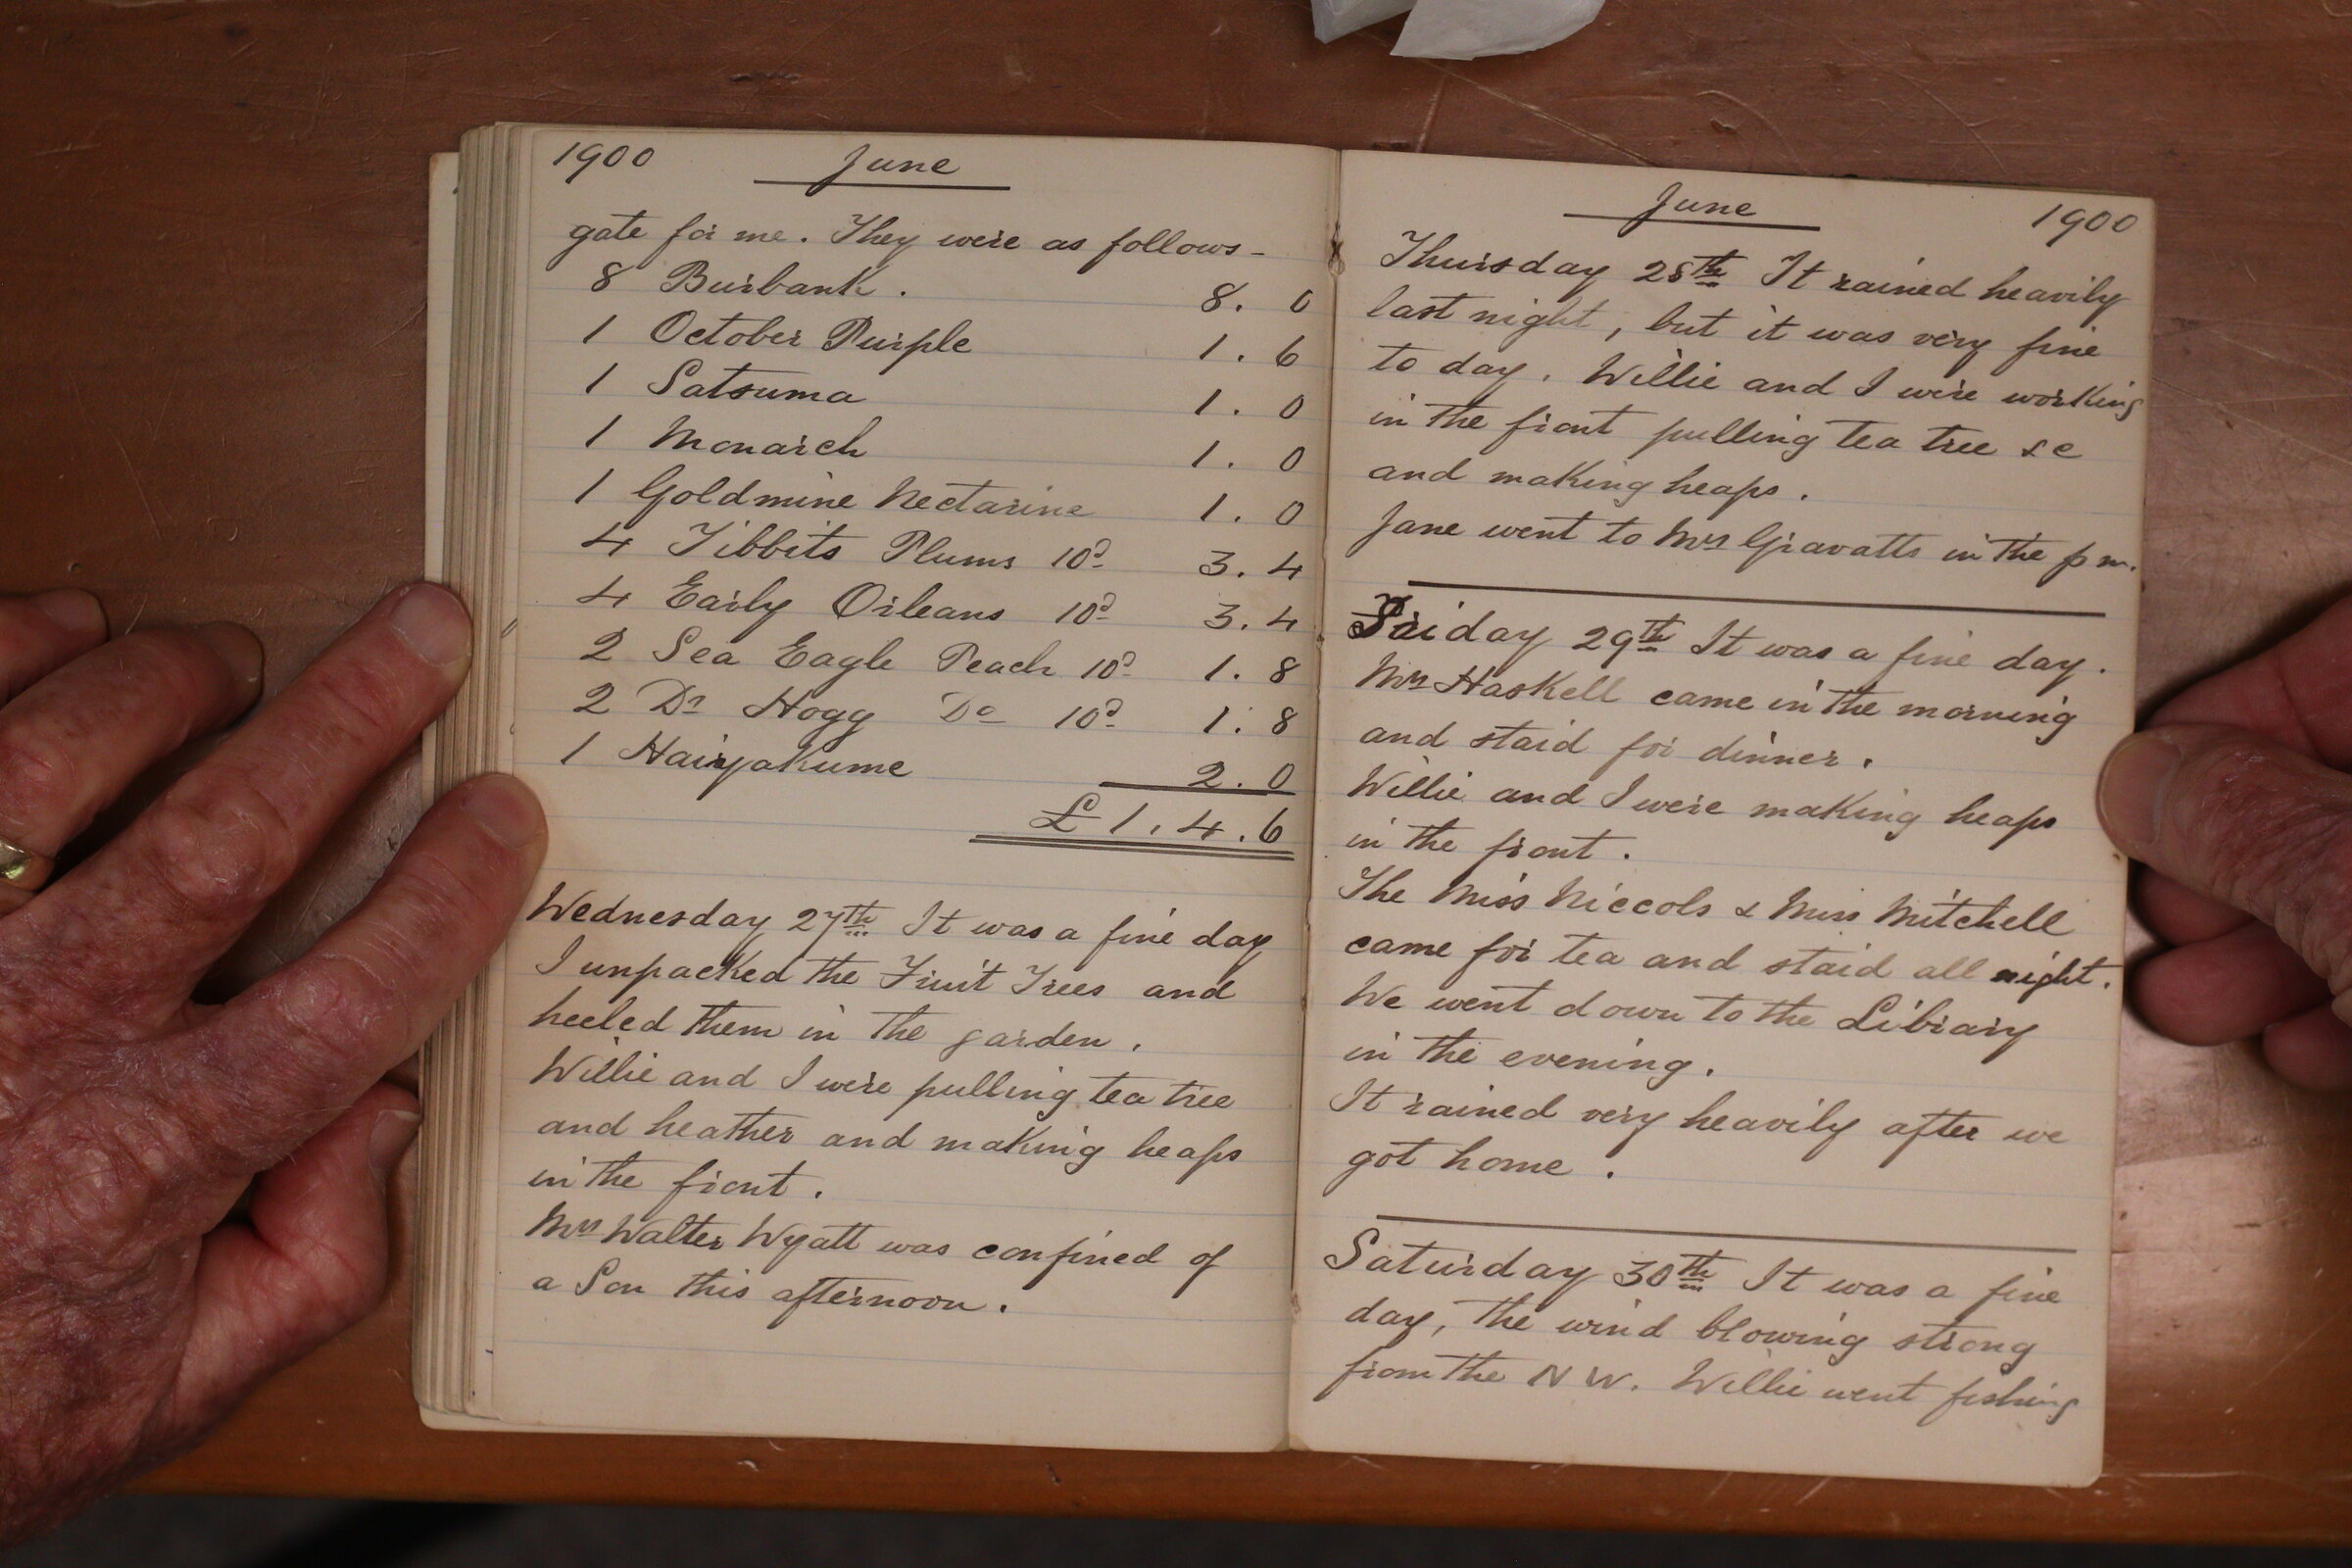 1900 June
gate for me. They were as follows -
8 Burbank. 8. 0
1 October Purple 1. 6
1 Satsuma 1. 0
1 Monarch 1. 0
1 Goldmine Nectarine 1. 0
4 Tibbits Plums 10d 3. 4
4 Early Orleans 10d 3. 4
2 Sea Eagle Peach 10d 1. 8
2 Dr Hogg Do 10d 1. 8
1 Hairyakume 2. 0
£1. 4. 6
Wednesday 27th It was a fine day
I unpacked the Fruit Trees and
heeled them in the garden.
Willie and I were pulling tea tree
and heather and making heaps
in the front.
Mrs Walter Wyatt was confined of
a Son this afternoon.
June 1900
Thursday 28th It rained heavily
last night, but it was very fine
to day. Willie and I were working
in the front pulling tea tree &c
and making heaps.
Jane went to Mrs Gravatts in the pm.
Friday 29th It was a fine day.
Mrs Haskell came in the morning
and staid for dinner.
Willie and I were making heaps
in the front.
The Miss Niccols & Miss Mitchell
came for tea and staid all night.
We went down to the Library
in the evening.
It rained very heavily after we
got home.
Saturday 30th It was a fine
day, the wind blowing strong
from the N W. Willie went fishing